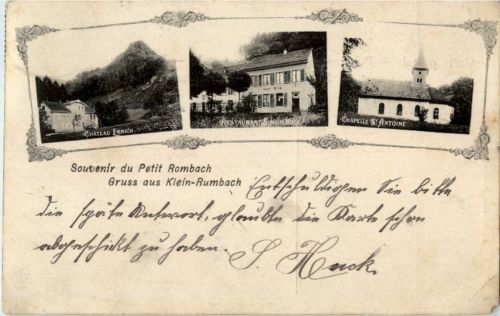 CHÂTEAU EHRICH
RESTAURANT SIMON HUCK
CHAPELLE St ANTOINE
Souvenir du Petit Rombach
Gruss aus Klein-Rumbach
Entschuldigen Sie bitte
die späte Antwort, glaubte die Karte schon
abgeschickt zu haben. S. Huck.